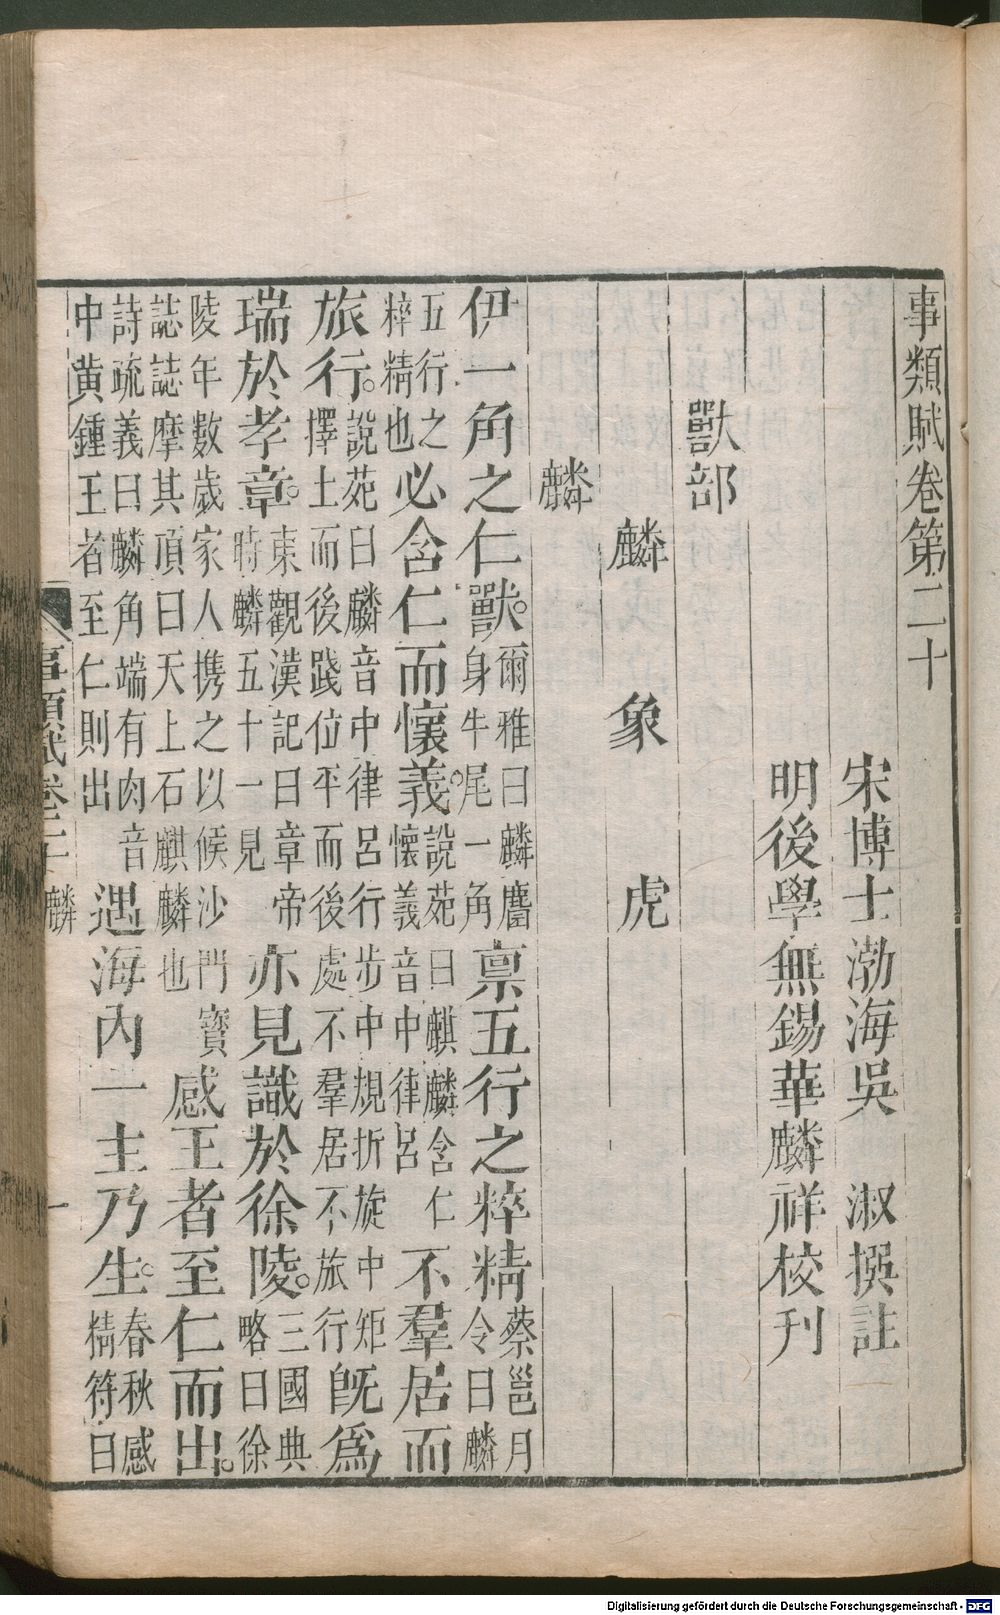 事類賦卷第二十
宋博士渤海吳　淑撰註
明後學無錫華麟祥校刊
獸部
麟　象　虎
麟
伊一角之仁獸。爾雅曰麟麕身牛尾一角稟五行之粹精蔡邕月令曰麟
五行之粹精也必含仁而懷義。說苑曰麒麟含仁懷義音中律呂不羣居而
旅行。說苑曰麟音中律呂行步中規折旋中矩擇土而後踐位平而後處不羣居不旅行旣爲
瑞於孝章。東觀漢記曰章帝時麟五十一見亦見識於徐陵。三國典略曰徐
陵年數歲家人携之以候沙門寶誌誌摩其頂曰天上石麒麟也感王者至仁而出。
詩疏義曰麟角端有肉音中黄鍾王者至仁則出遇海內一主乃生。春秋感精符曰
事類賦卷二十　麟　一
Digitalisierung gefördert durch die Deutsche Forschungsgemeinschaft - DFG